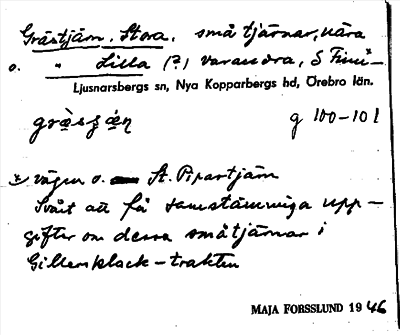 Grästjärn, Stora, små tjärnar, nära
o. " Lilla (?) varandra, S Finn-
Ljusnarsbergs sn, Nya Kopparbergs hd, Örebro län.
g 100-101
vägen o. St. Pipartjärn
Svårt att få samstämmiga upp-
gifter om dessa småtjärnar i
Gillersklack-trakten
MAJA FORSSLUND 1946